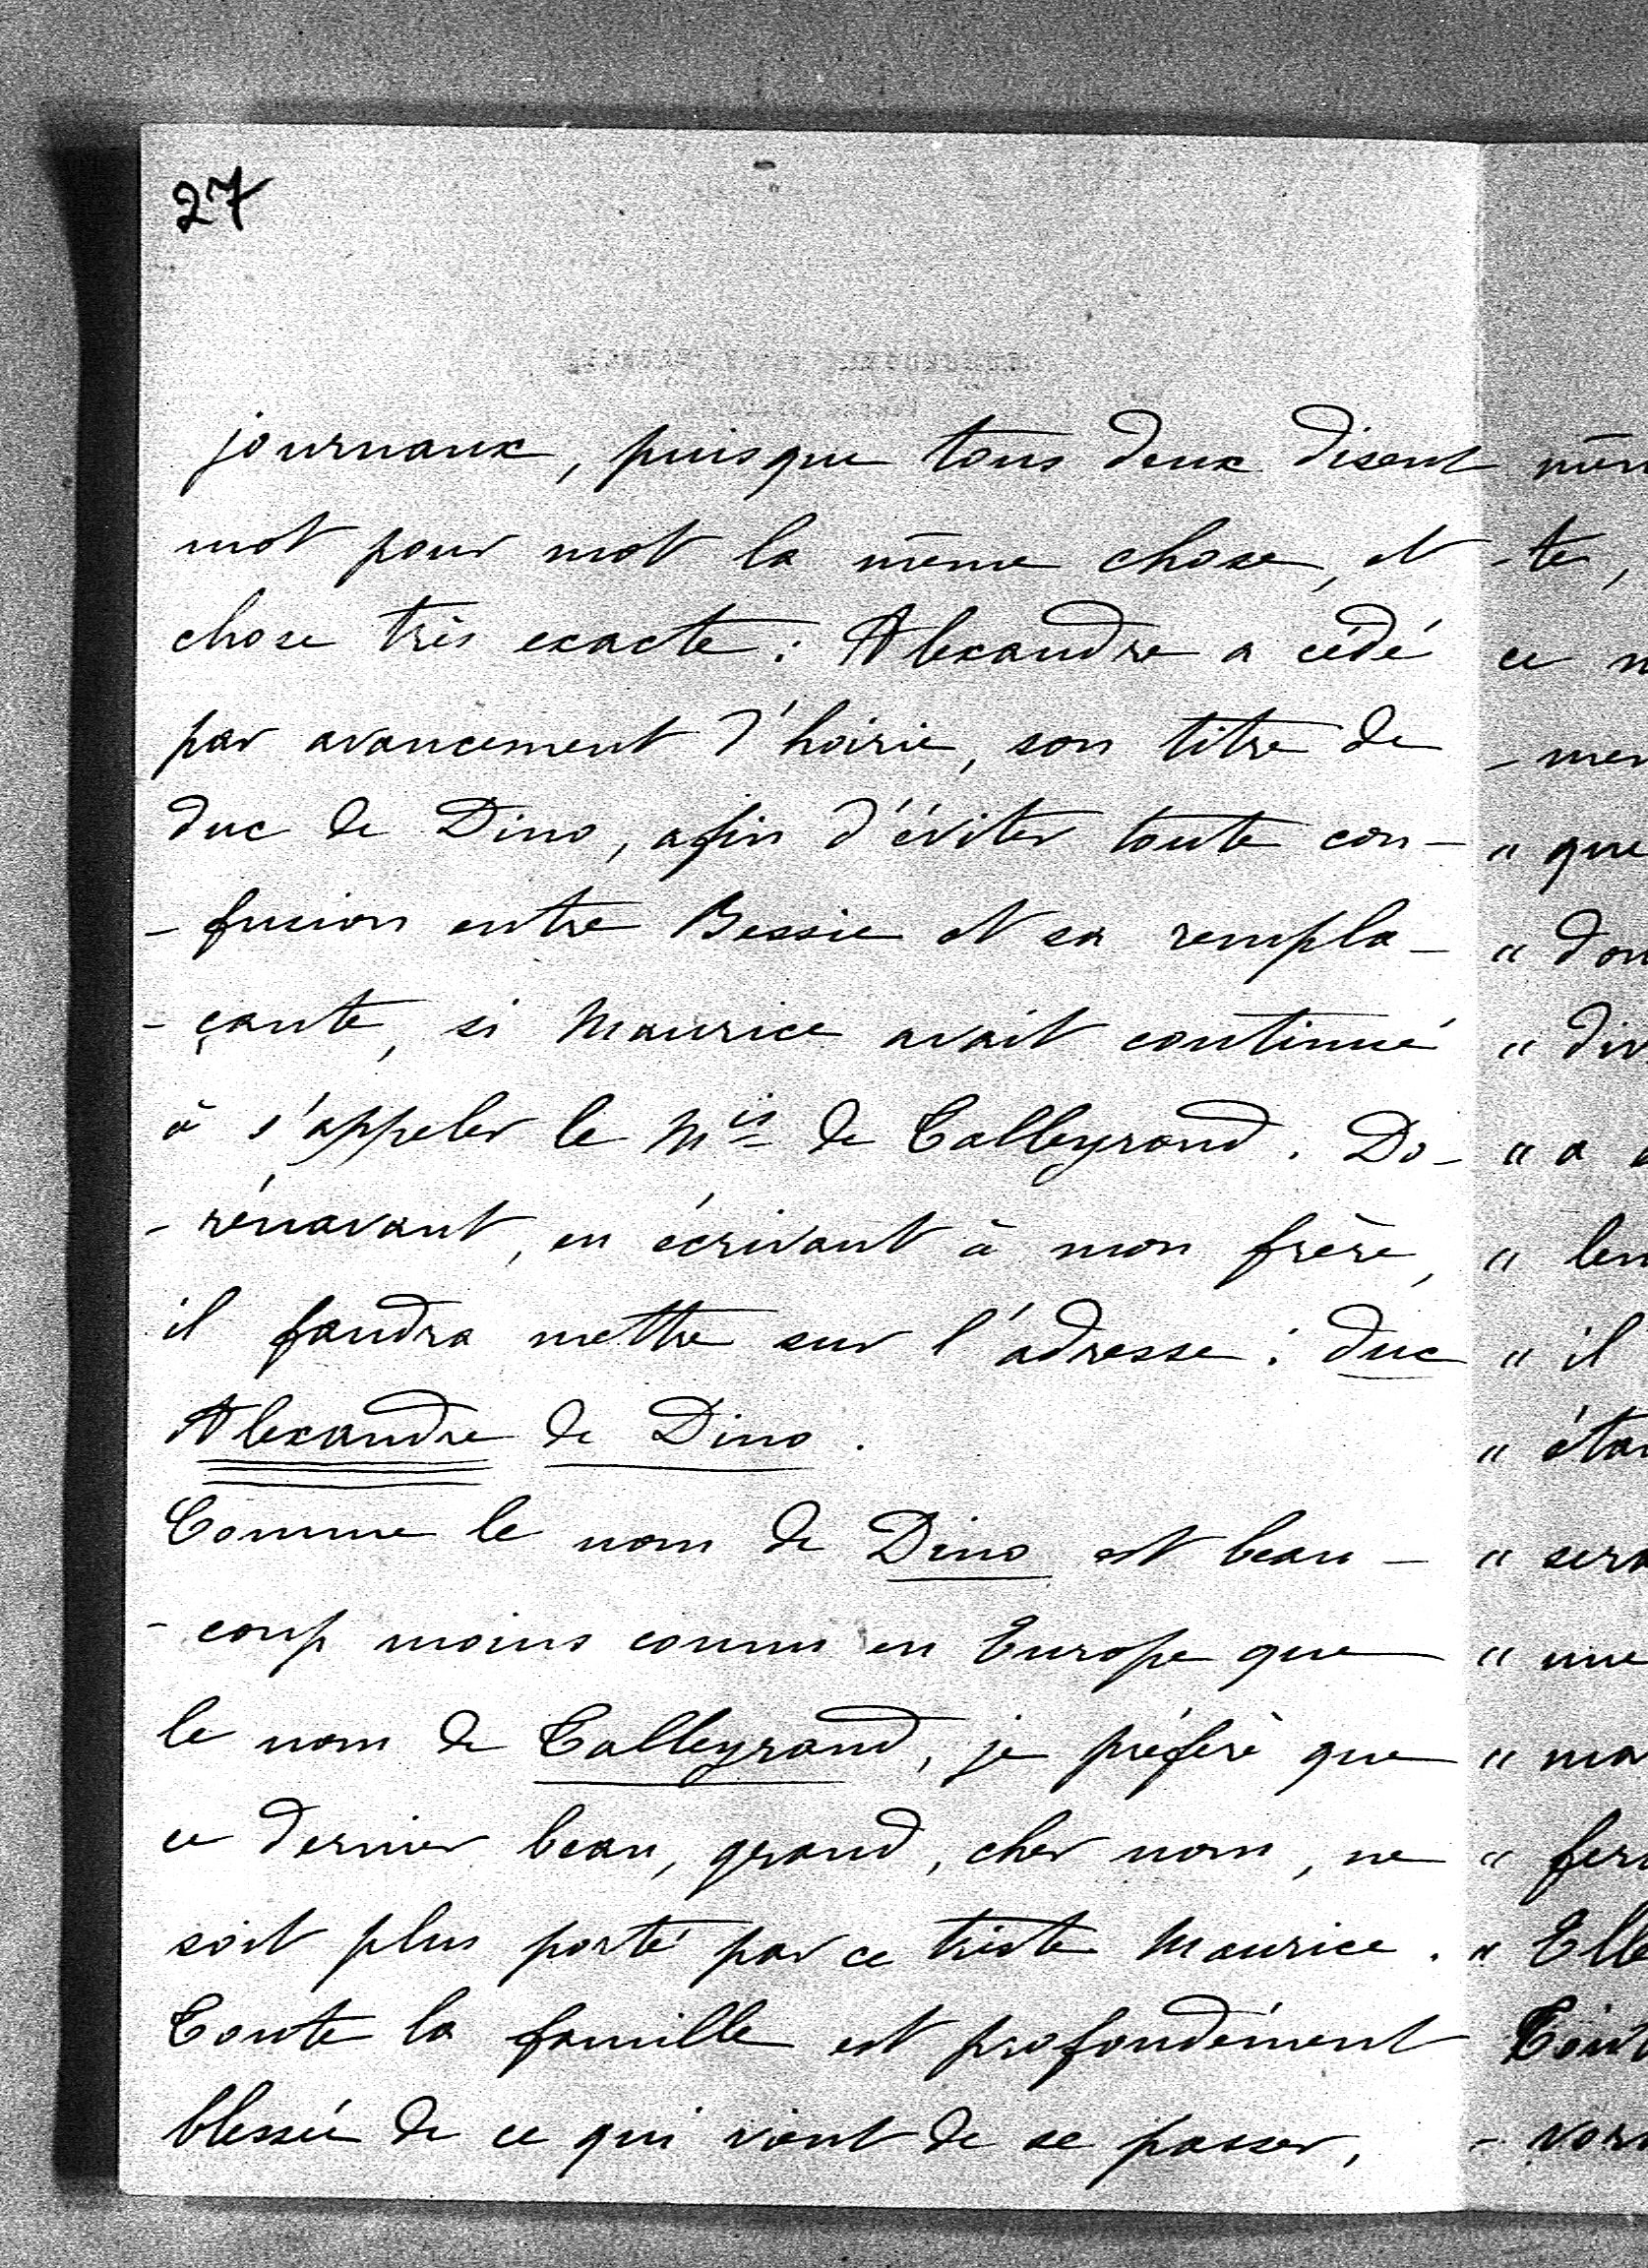 27
journaux, puisque tous deux disent
mot pour mot la même chose, et
chose très exacte : Alexandre a cédé
par avancement d'hoirie, son titre de
duc de Dino, afin d'éviter toute con-
- fusion entre Bessie et sa rempla-
- çante, si Maurice avait continué
à s'appeler le Mis de Talleyrand. Do-
- rénavant, en écrivant à mon frère,
il faudra mettre sur l'adresse : duc
Alexandre de Dino.
Comme le nom de Dino est beau-
- coup moins connu en Europe que
le nom de Talleyrand, je préfère que
ce dernier beau, grand, cher nom, ne
soit plus porté par ce triste Maurice.
Toute la famille est profondément
blessée de ce qui vient de se passer,
-te,
ce n
- men
" que
" don
" div
" a
" len
" il
" étai
" sera
" une
" ma
" fer
" Elle
Tout